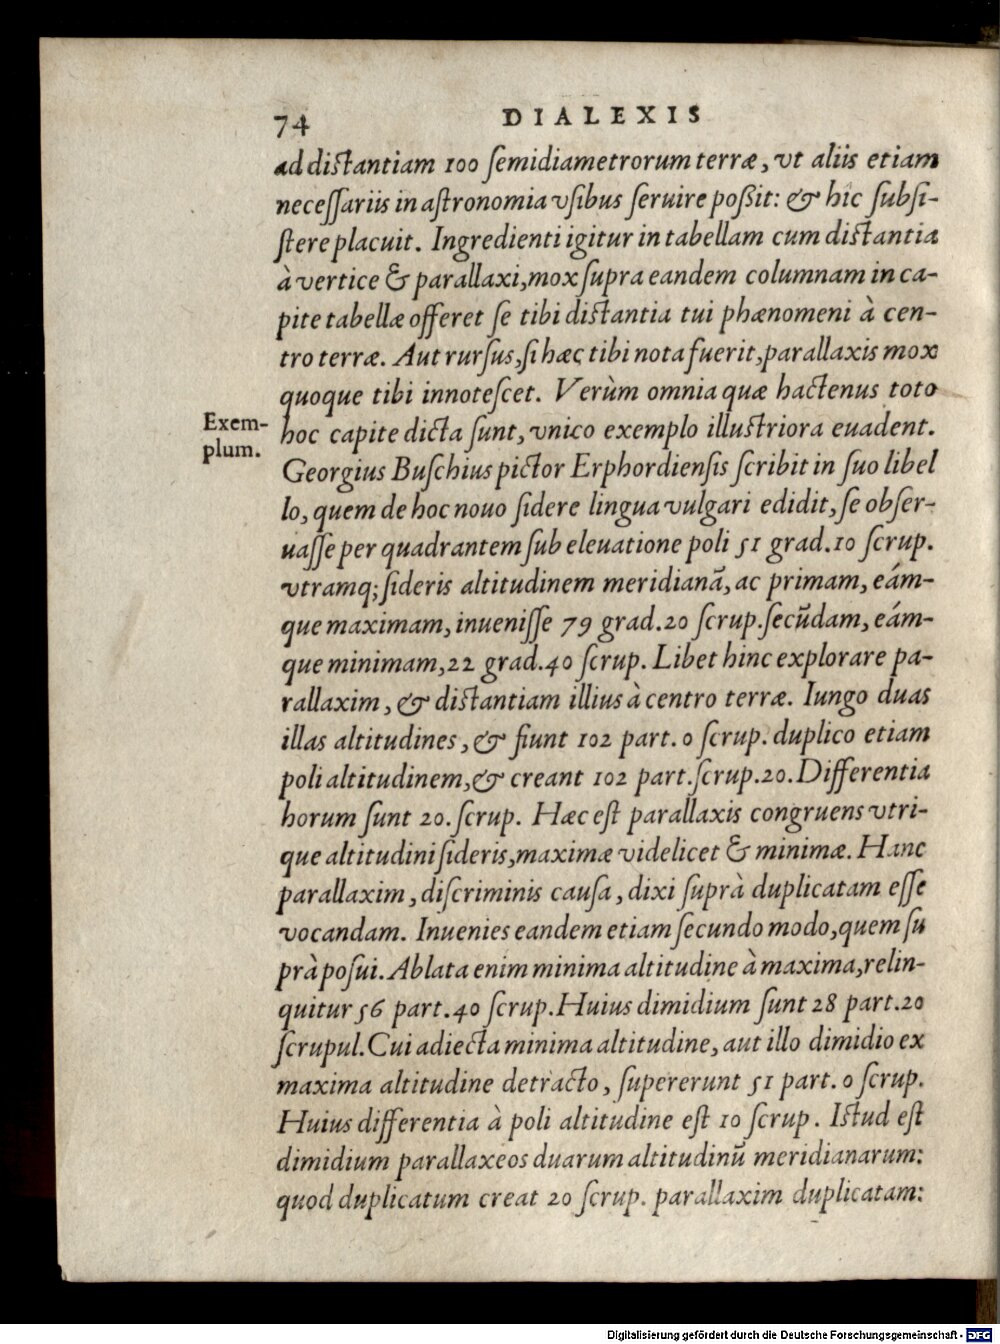 74 DIALEXIS
ad distantiam 100 ſemidiametrorum terræ, vt aliis etiam
neceſſariis in aſtronomia vſibus ſeruire poßit: & hic ſubſi-
ſtere placuit. Ingredienti igitur in tabellam cum distantia
à vertice & parallaxi, mox ſupra eandem columnam in ca-
pite tabellæ offeret ſe tibi distantia tui phænomeni à cen-
tro terræ. Aut rurſus, ſi hæc tibi nota fuerit, parallaxis mox
quoque tibi innoteſcet. Verùm omnia quæ hactenus toto
Exem-
plum.
hoc capite dicta ſunt, vnico exemplo illuſtriora euadent.
Georgius Buſchius pictor Erphordienſis ſcribit in ſuo libel
lo, quem de hoc nouo ſidere lingua vulgari edidit, ſe obſer-
uaſſe per quadrantem ſub eleuatione poli 51 grad. 10 ſcrup.
vtramq; ſideris altitudinem meridianã, ac primam, eám-
que maximam, inueniſſe 79 grad. 20 ſcrup. ſecũdam, eám-
que minimam, 22 grad. 40 ſcrup. Libet hinc explorare pa-
rallaxim, & distantiam illius à centro terræ. Iungo duas
illas altitudines, & fiunt 102 part. 0 ſcrup. duplico etiam
poli altitudinem, & creant 102 part. ſcrup. 20. Differentia
horum ſunt 20. ſcrup. Hæc eſt parallaxis congruens vtri-
que altitudini ſideris, maximæ videlicet & minimæ. Hanc
parallaxim, diſcriminis cauſa, dixi ſuprà duplicatam eſſe
vocandam. Inuenies eandem etiam ſecundo modo, quem ſu
prà poſui. Ablata enim minima altitudine à maxima, relin-
quitur 56 part. 40 ſcrup. Huius dimidium ſunt 28 part. 20
ſcrupul. Cui adiecta minima altitudine, aut illo dimidio ex
maxima altitudine detracto, ſupererunt 51 part. 0 ſcrup.
Huius differentia à poli altitudine eſt 10 ſcrup. Istud eſt
dimidium parallaxeos duarum altitudinũ meridianarum:
quod duplicatum creat 20 ſcrup. parallaxim duplicatam:
Digitalisierung gefördert durch die Deutsche Forschungsgemeinschaft - DFG